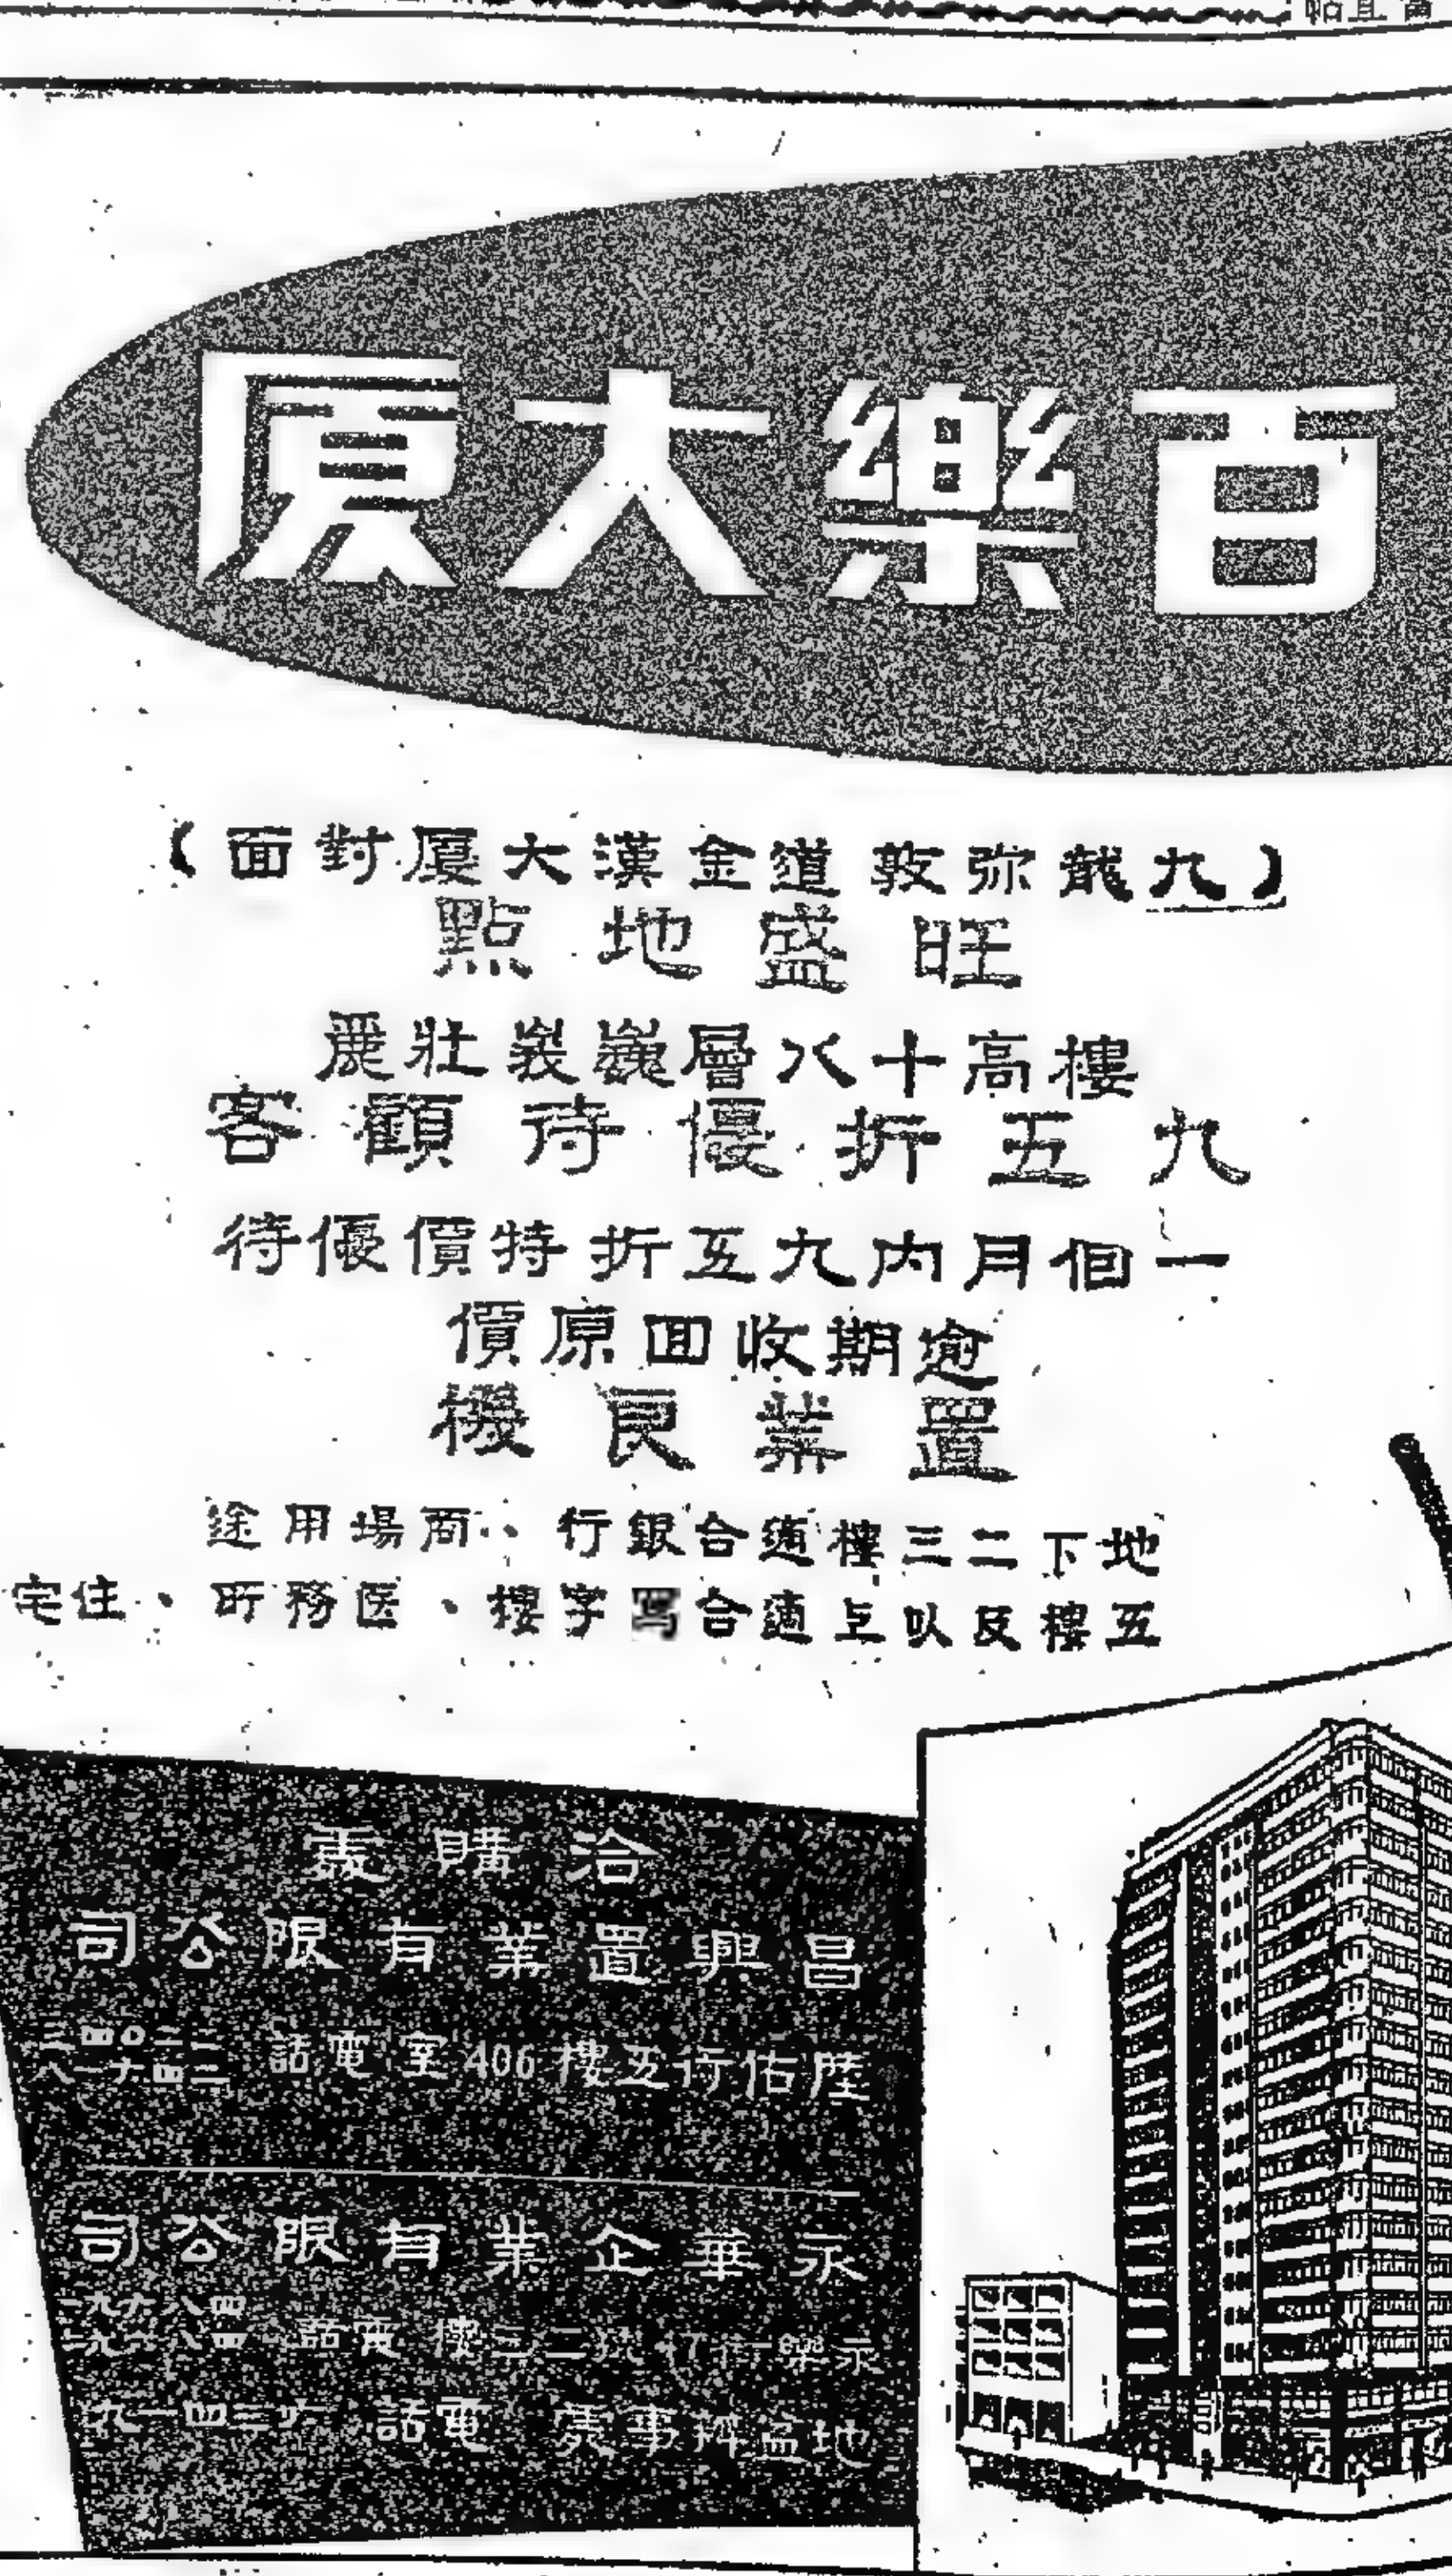 百樂大厦
(九龍弥敦道金漢大厦對面)
旺盛地點
樓高十八層巍峩壯麗
九五折優待顧客
一個月內九五折特價優待
逾期收回原價
置業良機
地下二三樓適合銀行、商場用途
五樓及以上適合寫字樓、医務所、住宅
洽購處
昌興置業有限公司
陸佑行五樓406室 電話 二二〇四三
二四九一八
永華企業有限公司
二三樓 電話
地盆辦事處 電話 六三四一九